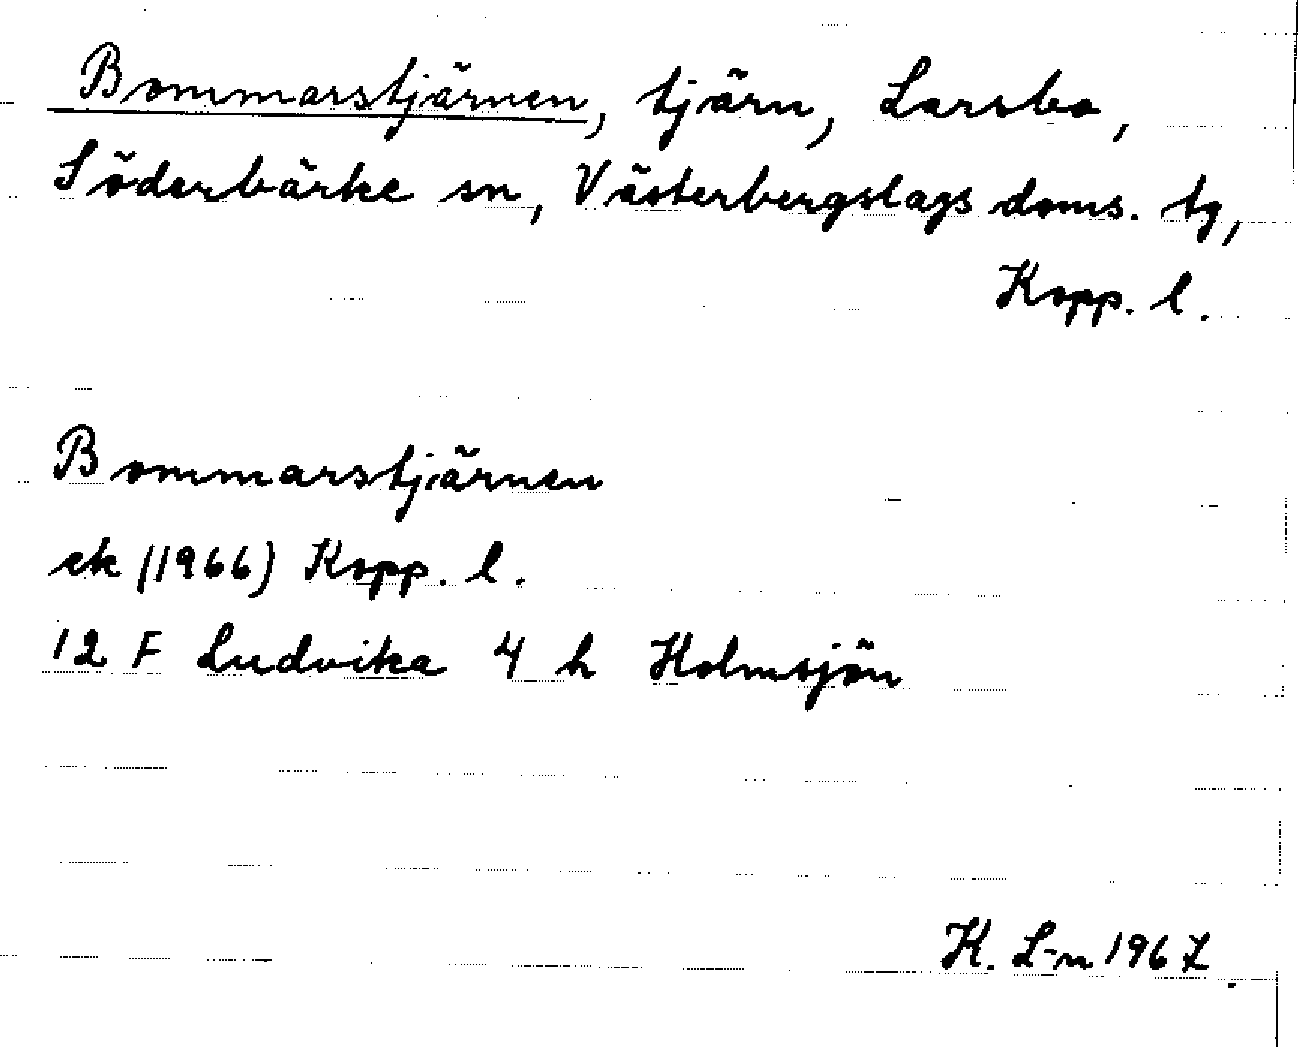 Bommarstjärnen, tjärn, Larsbo,
Söderbärke sn, Västerbergslags doms. tg,
Kopp. l.
Bommarstjärnen
ek (1966) Kopp. l.
12 F Ludvika 4 h Holmsjön
K. L-n 1967.